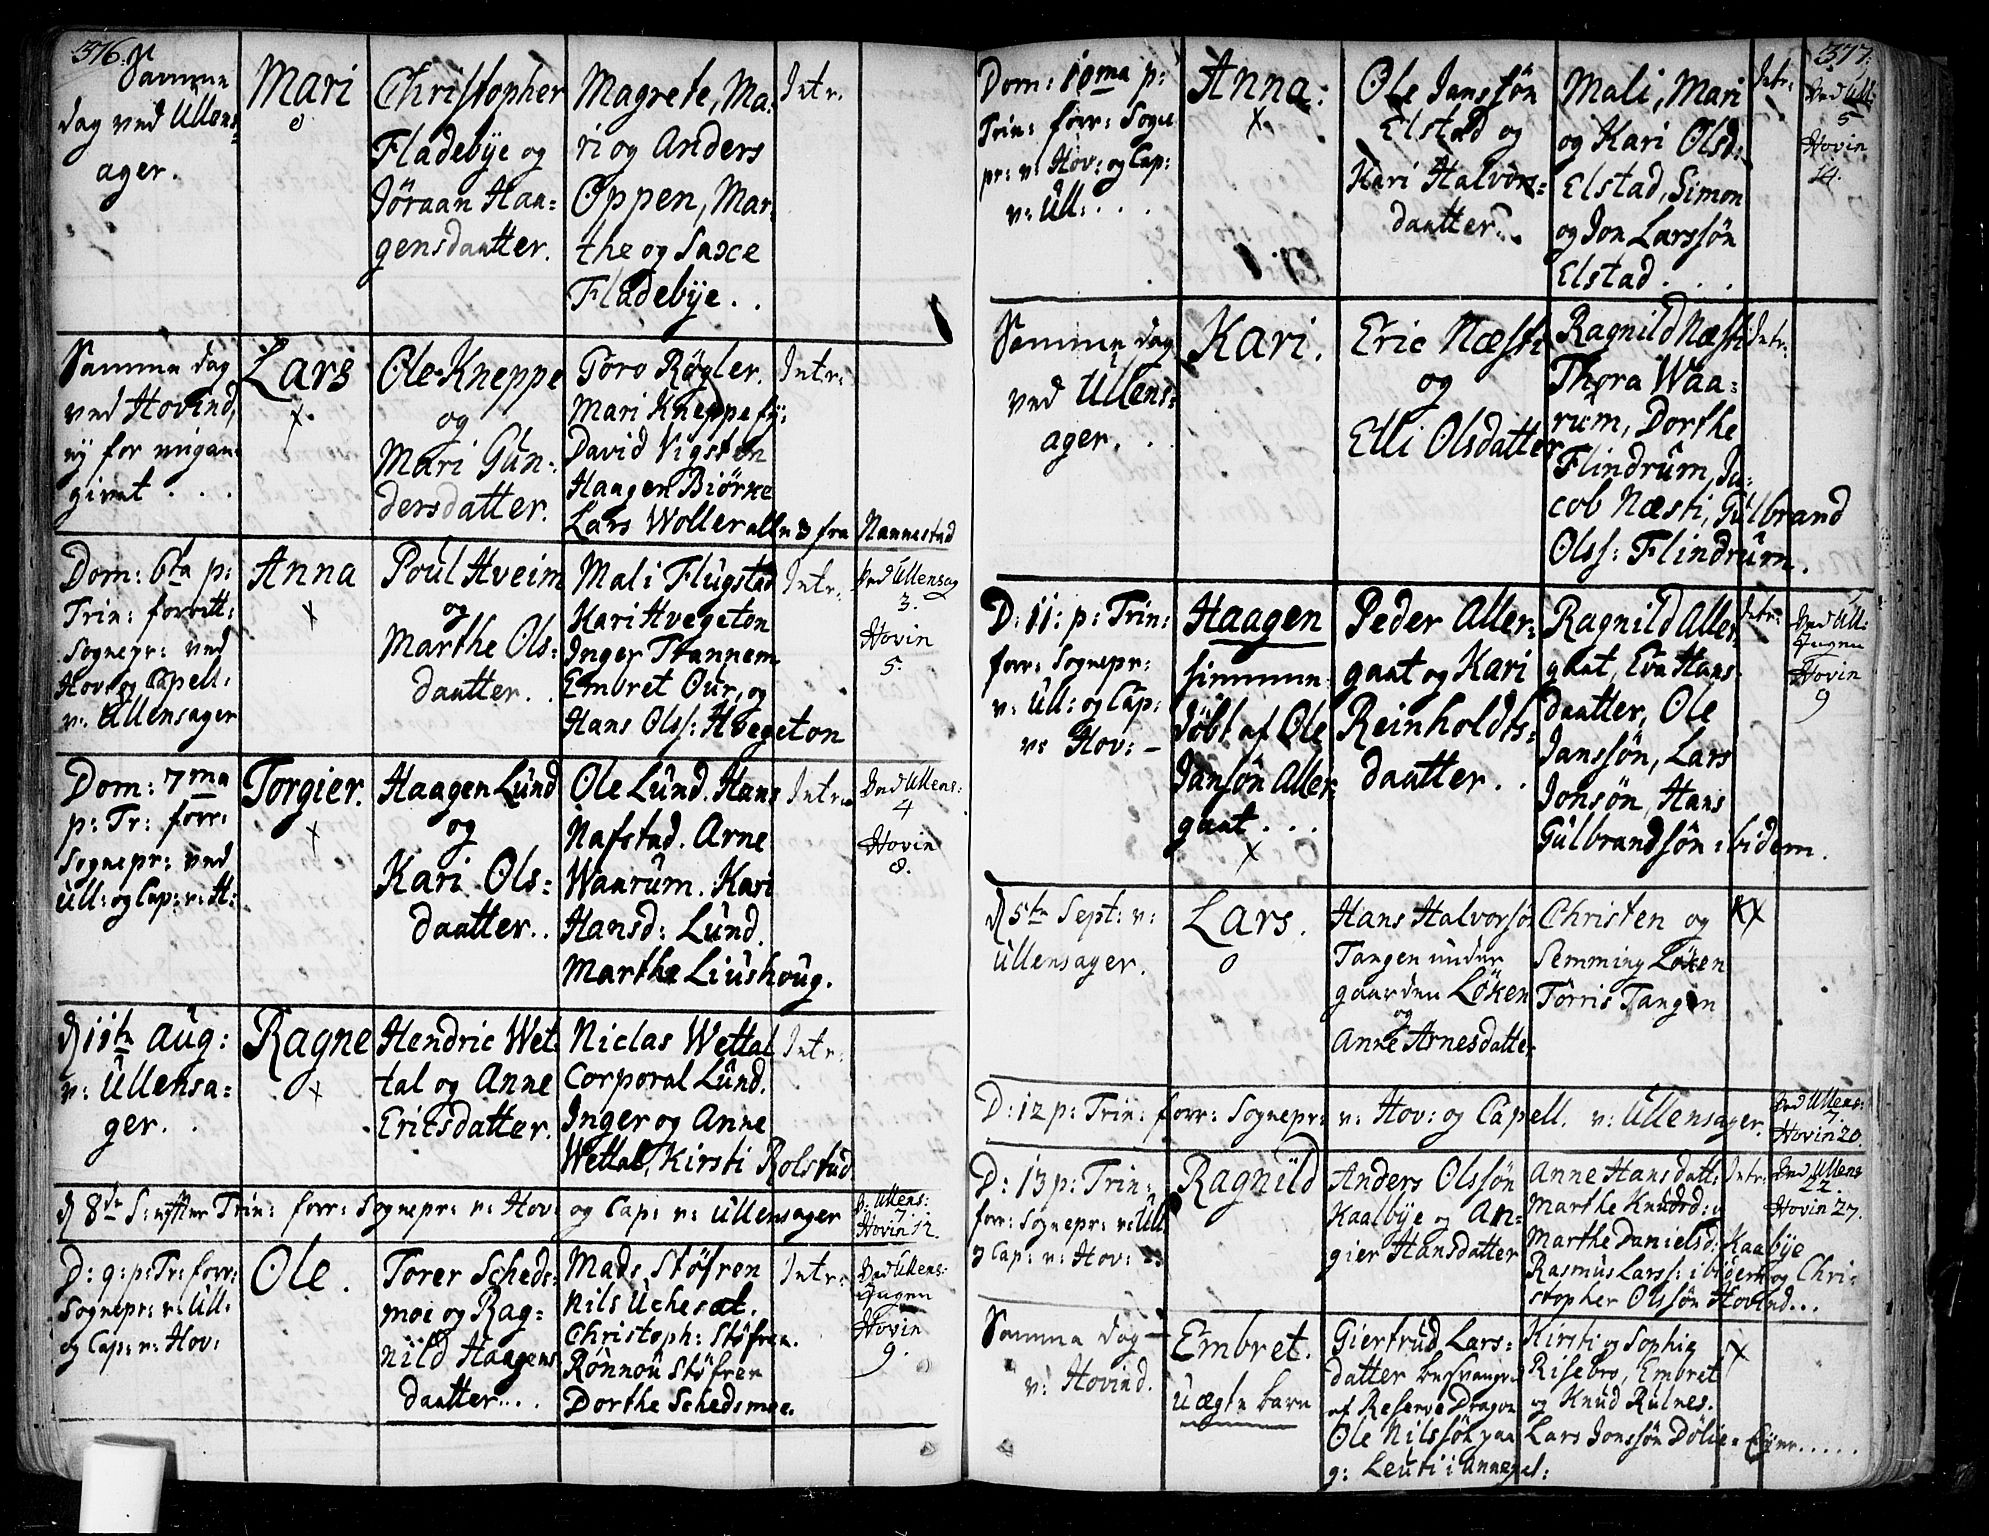 376.
Samme
dag ved Ullens-
ager.
Mari
Christopher
Fladebÿe og
Jöraan Haa=
gensdaatter.
Magrete, Ma=
ri og Anders
Oppen, Mar=
the og Saxe
Fladebÿe. .
Intr.
Samme dag
ved Hovind,
givet . . .
Lars
x
Ole Kneppe
og
Mari Gün=
dersdatter.
Toro Røgler.
Mari Kneppe
David Vigsten
Haagen Biörke
Lars Woller alle 3 fra Nannestad
Intr:
Dom: 6ta p:
Trin: forrett:
Sognepr: ved
Hov: og Capell:
v: Ullensager
Anna
x
Poül Hveim
og
Marthe Ols=
daatter. .
Mali Flügstad
Kari Hvegeton
Inger Trannem
Embret Our, og
Hans Olss: Hvegeton
Intr.
Ved Ullensag
3.
Hovin
5.
Dom: 7ma
p: Tr: forr:
Sognepr: ved
Ull: og Cap: v: H:
Torgier.
x
Haagen Lünd
og
Kari Ols=
daatter. .
Ole Lünd. Hans
Nafstad. Arne
Waarüm. Kari
Hansd: Lünd.
Marthe Liushoug.
Intr.
Ved Ullens:
4
Hovin
8.
d 11te Aug:
v: Ullensa=
ger. .
Ragne
x
Hendric Wet
tal og Anne
Ericsdatter.
Niclas Wettal
Corporal Lünd.
Inger og Anne
Wettal, Kirsti Rolstad
Intr.
d 8de S: efter Trin: forr: Sognepr: v: Hov: og Cap: v: Ullensager
V: Ullens:
7
Hovin 12.
D: 9: p: Tr: forr:
Sognepr: v: Ull:
og Cap: v: Hov:
Ole.
Torer Scheds=
moe og Rag=
nild Haagens
daatter. . .
Mads Stöfren
Nils Uchesal.
Christoph: Stöfren.
Rönnou Stöfrer
Dorthe Schedsmoe.
Intr:
Ved Ullens:
Ingen
Hovin
9.
377.
Dom: 10ma p:
Trin: forr: Sogne
pr: v: Hov: og Cap:
v: Ull: . . .
Anna:
x
Ole Janssön
Elstad og
Kari Halvors=
daatter. .
Mali, Mari
og Kari Olsd:
Elstad, Simon
og Jon Larssön
Elstad . . .
Intr:
Ved Ull:
5
Hovin
14.
Samme dag
ved Ullens=
ager. .
Kari.
Eric Næsti
og
Elli Olsdatter
Ragnild Næsti
Thora Waa=
rüm, Dorthe
Flindrüm, Ja=
cob Næsti, Gülbrand
Olss: Flindrüm.
Intr:
D: 11: p: Trin:
forr: Sognepr:
v: Ull: og Cap:
v: Hov: —
Haagen
hiemme
döbt af Ole
Jansön Aller
gaat . . .
x
Peder Aller=
gaat og Kari
Reinholdts=
daatter . .
Ragnild Aller
gaat, Eva Hans
daatter, Ole
Janssön, Lars
Jonsön, Hans
Gülbrandsön ibidem.
Intr:
Ved Ull:
Ingen
Hovin
9
d 5te Sept: v:
Ullensager.
Lars.
o
Hans Halvorsön
Tangen under
gaarden Löken
og
Anne Arnesdatter
Christen og
Semming Löken
Torris Tangen
D: 12 p: Trin: forr: Sognepr: v: Hov: og Capell. v: Ullensager.
Ved Ullens:
7
Hovin 20.
D: 13 p: Trin:
forr: Sognepr: v: Ull
og Cap: v: Hov:
Ragnild
Anders Olssön
Kaalbÿe og An=
gier Hansdatter
Anne Hansdatt:
Marthe Knudsd:
Marthe Danielsd: Kaabÿe
Rasmus Larss: ibidem og Chri=
stopher Olssön Hovind. . .
Intr:
Ved Ullens
22
Hovin 27.
Samme dag
v: Hovind.
Embret.
uægte barn
Giertrüd Lars=
datter besvangret
af Reserve Dragon
Ole Nilssön paa
g: Leuti i Annexet:
Kirsti og Sophie
Risebro, Embret
og Knud Rulnes.
Lars Jonssön Dölie
x